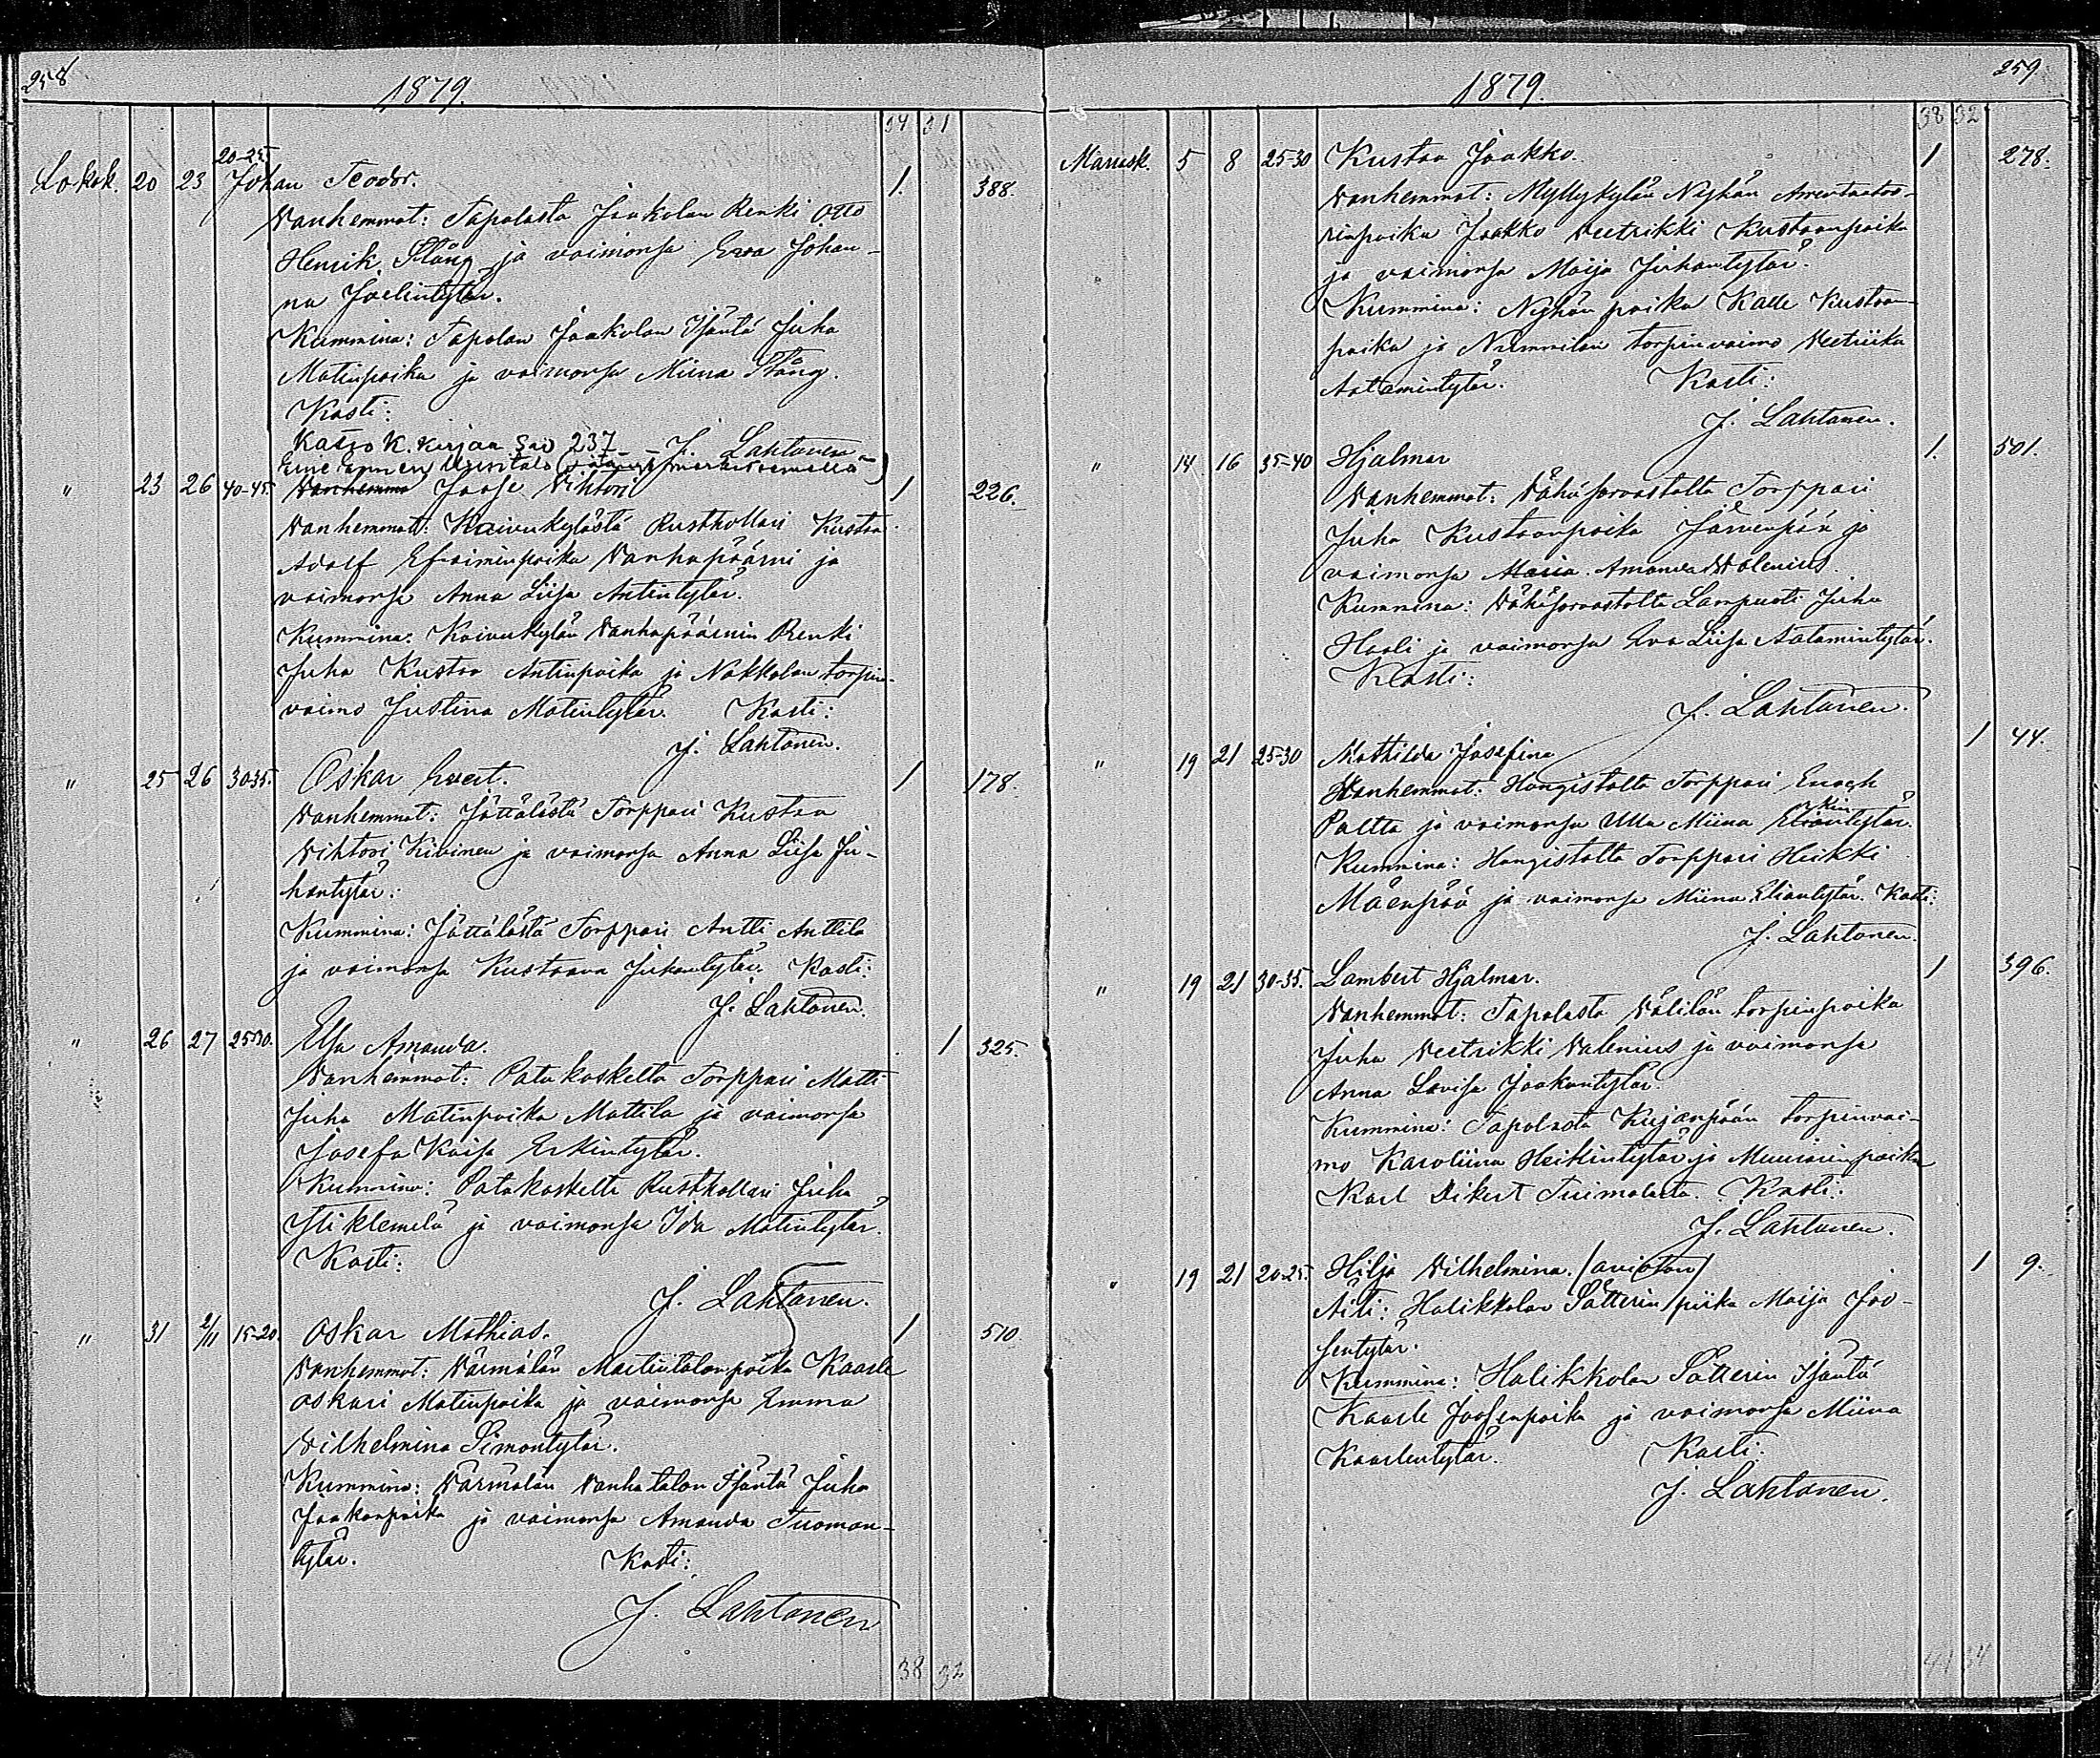 258
1879.
34 31
20-25.
Lokak. 20 23 Johan Teodor. 1. 388.
Vanhemmat: Tapalasta Jaakolan Renki Otto
Henrik Stång ja vaimonsa Ewa Johan-
na Joelintytär.
Kummina: Tapolan Jaakolan Isäntä Juha
Matinpoika ja vaimonsa Miina Stång.
Kasti:
Katso K. Kirjaa Siv 237
J. Lahtonen
" 23 26 40-45. Vanhemma Joose Vihtori 1 226.
Vanhemmat: Kaivukylästä Rusthollari Kustaa
Adolf Efraiminpoika Vanhapäärni ja
vaimonsa Anna Liisa Antintytär.
Kummina: Kaivukylän Vanhapäärnin Renki
Juha Kustaa Antinpoika ja Nokkolan torpin-
vaimo Justina Matintytär. Kasti:
J. Lahtonen.
" 25 26 30-35. Oskar Evert. 1 178.
Vanhemmat: Jättälästä Torppari Kustaa
Vihtori Kivinen ja vaimonsa Anna Liisa Ju-
hantytär.
Kummina: Jättälästä Torppari Antti Anttila
ja vaimonsa Kustaava Juhantytär. Kasti:
J. Lahtonen.
" 26 27 25-30. Elsa Amanda. 1 325.
Vanhemmat: Patakoskelta Torppari Matti
Juha Matinpoika Mattila ja vaimonsa
Josefa Kaisa Erkintytär.
Kummina: Patakoskelta Rusthollari Juha
Yliklemelä ja vaimonsa Ida Matintytär.
Kasti:
J. Lahtonen.
" 31 2/11 15-20. Oskar Mathias. 1 510.
Vanhemmat: Värmälän Martintalonpoika Kaarle
Oskari Matinpoika ja vaimonsa Emma
Vilhelmina Simontytär.
Kummina: Värmälän Vanhatalon Isäntä Juha
Jaakonpoika ja vaimonsa Amanda Tuoman-
tytär. Kasti:
J. Lahtonen
38 32
259.
1879.
38 32
Marrask. 5 8 25-30 Kustaa Jaakko. 1 278.
Vanhemmat: Myllykylän Nyhän Arentaator-
rinpoika Jaakko Veetrikki Kustaanpoika
ja vaimonsa Maija Juhantytär.
Kummina: Nyhän poika Kalle Kustaan-
poika ja Nummilan torpinvaimo Veetriika
Aatamintytär. Kasti:
J. Lahtonen.
" 14 16 35-40 Hjalmar 1. 501.
Vanhemmat: Vähäsorvastolta Torppari
Juha Kustaanpoika Järvenpää ja
vaimonsa Maria Amanda Valenius.
Kummina: Vähäsorvastolta Lampuoti Juha
Haali ja vaimonsa Eva Liisa Aatamintytär.
Kasti:
J. Lahtonen.
" 19 21 25-30 Mathilda Josefina 1 44.
Vanhemmat: Hangistolta Torppari Enoch
Paltta ja vaimonsa Ulla Miina Eliantytär.
Kummina: Hangistolta Torppari Heikki
Mäenpää ja vaimonsa Miina Eliantytär. Kasti:
J. Lahtonen.
" 19 21 30-35. Lambert Hjalmar. 1 396.
Vanhemmat: Tapolasta Välilän torpinpoika
Juha Veetrikki Valenius ja vaimonsa
Anna Lovisa Jaakontytär.
Kummina: Tapolasta Kujanpään torpinvai-
mo Karoliina Heikintytär ja Muurarinpoika
Karl Vikert Tuimalasta. Kasti:
J. Lahtonen.
" 19 21 20-25. Hilja Vilhelmina. (avioton) 1 9.
Äiti: Halikkolan Sätterin piika Maija Joo-
sentytär.
Kummina: Halikkolan Sätterin Isäntä
Kaarle Joosenpoika ja vaimonsa Miina
Kaarlentytär. Kasti:
J. Lahtonen.
41 34